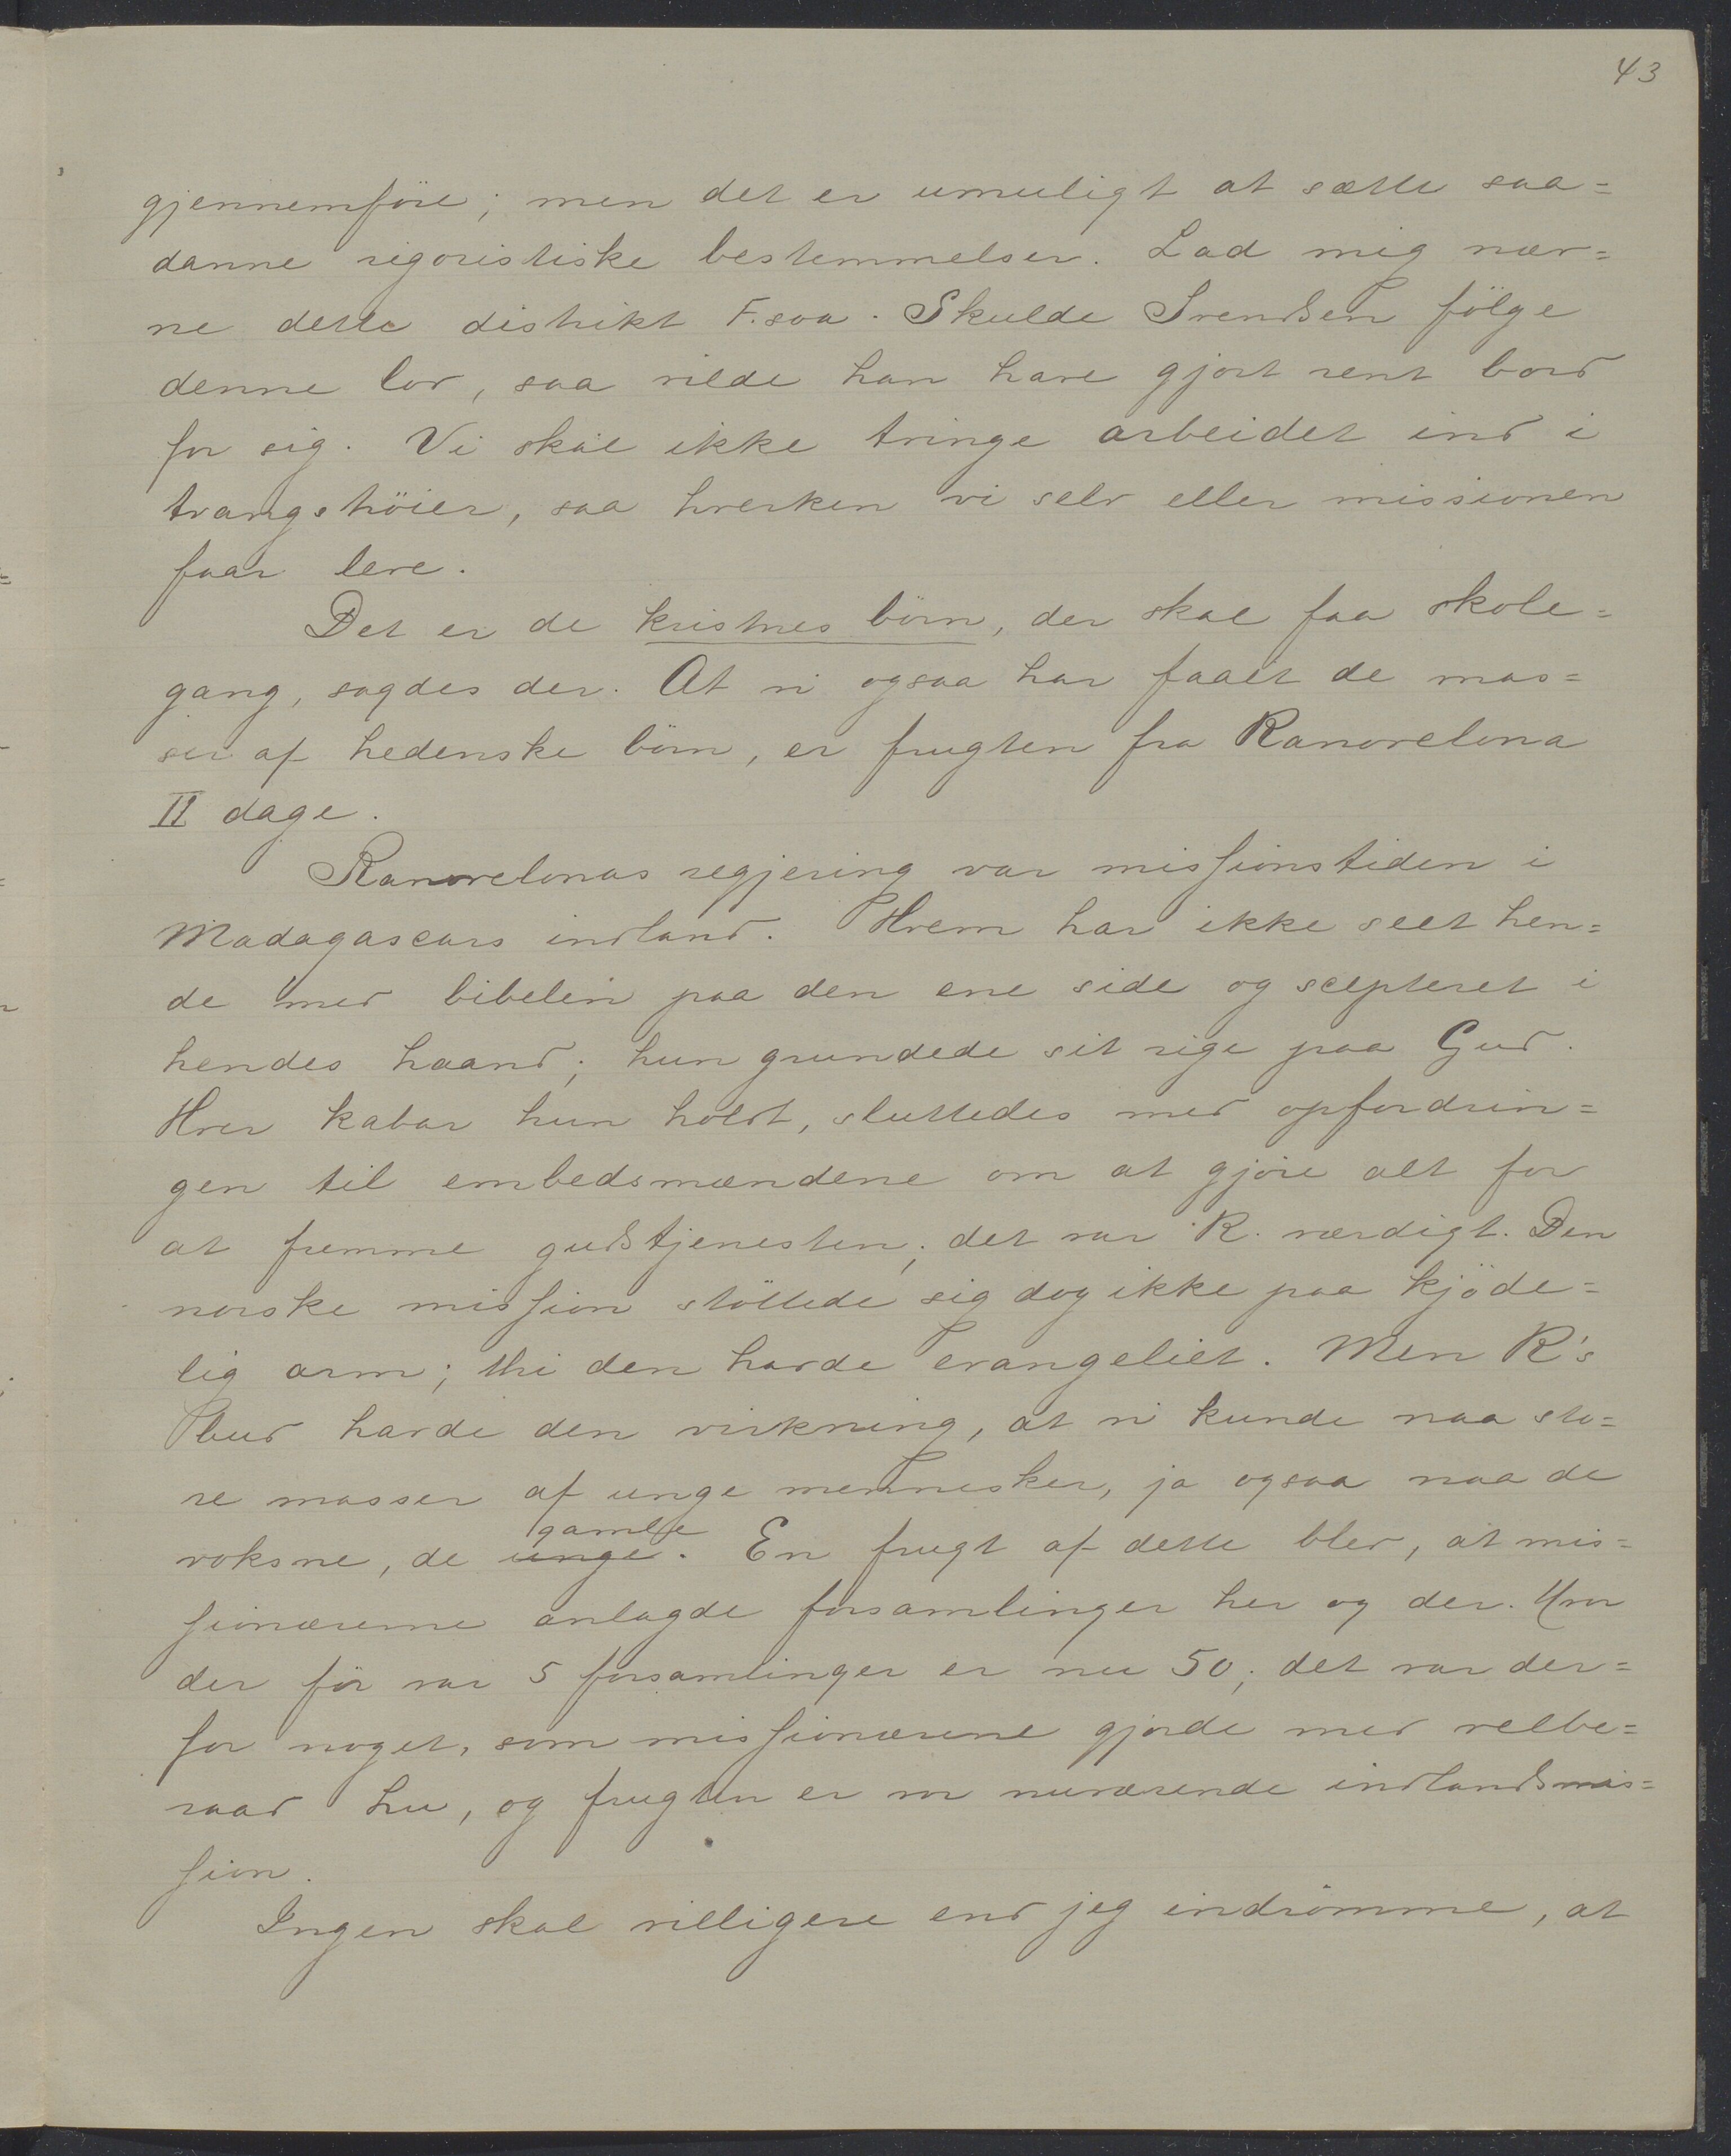 43
gjennemföre; men det er umuligt at sætte saa=
danne rigoristiske bestemmelser. Lad mig næv=
ne dette distrikt F. soa. Skulde Svendsen fölge
denne lov, saa vilde han have gjort rent bord
for sig. Vi skal ikke tvinge arbeidet ind i
trangstöier, saa hverken vi selv eller missionen
faar leve.
Det er de kristnes börn, der skal faa skole=
gang, sagdes der. At vi ogsaa har faaet de mas=
ser af hedenske börn, er frugten fra Ranovelona
II dage.
Ranovelonas regjering var missionstiden i
Madagascars indland. Hvem har ikke seet hen=
de med bibelen paa den ene side og scepteret i
hendes haand; hun grundede sit rige paa Gud.
Hver kabar hun holdt, sluttedes med opfordrin=
gen til embedsmændene om at gjöre alt for
at fremme gudstjenesten; det var R. værdigt. Den
norske mission stöttede sig dog ikke paa kjöde=
lig arm; thi den havde evangeliet. Men R's
bud havde den virkning, at vi kunde naa sto=
re masser af unge mennesker, ja ogsaa naa de
voksne, de unge gamle. En frugt af dette blev, at mis=
sionærerne anlagde forsamlinger her og der. Hvor
der för var 5 forsamlinger er nu 50; det var der=
for noget, som missionærene gjorde med velbe=
raad hu, og frugten er vor nuværende indlandsmis=
sion.
Ingen skal villigere end jeg indrömme, at